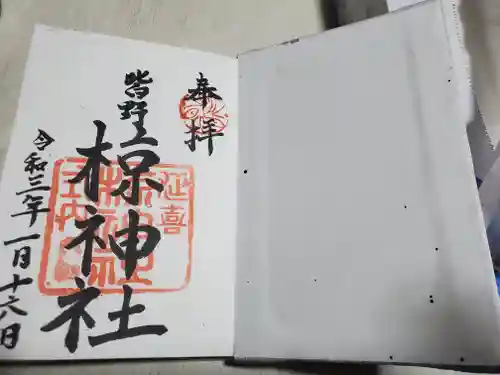 奉拝
皆野
椋神社
令和三年一月十六日
延喜
式内
椋神社